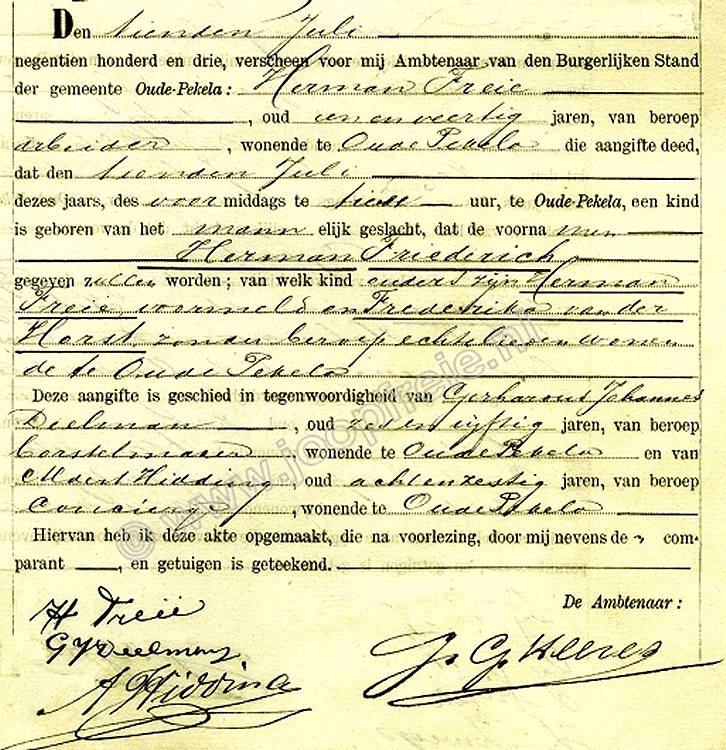 Den tienden Juli
negentien honderd en drie, verscheen voor mij Ambtenaar van den Burgerlijken Stand
der gemeente Oude-Pekela: Herman Freie
, oud eenenveertig jaren, van beroep
arbeider, wonende te Oude Pekela die aangifte deed,
dat den tienden Juli
dezes jaars, des voor middags te uur, te Oude-Pekela, een kind
is geboren van het mann elijk geslacht, dat de voorna men
Herman Friederich
gegeven zullen worden; van welk kind ouders zijn Herman
Freie voormeld en Frederika van der
Horst, zonder beroep echtelieden wonen
de te Oude Pekela
Deze aangifte is geschied in tegenwoordigheid van Gerhardus Johannes
Deelman, oud zevenvijftig jaren, van beroep
borstelmaker, wonende te Oude Pekela en van
Hidding, oud achtenzestig jaren, van beroep
Concierge, wonende te Oude Pekela
Hiervan heb ik deze akte opgemaakt, die na voorlezing, door mij nevens de com-
parant, en getuigen is geteekend.
De Ambtenaar:
H Freie
GJ Deelman
A Hidding
© www.joopfreie.nl